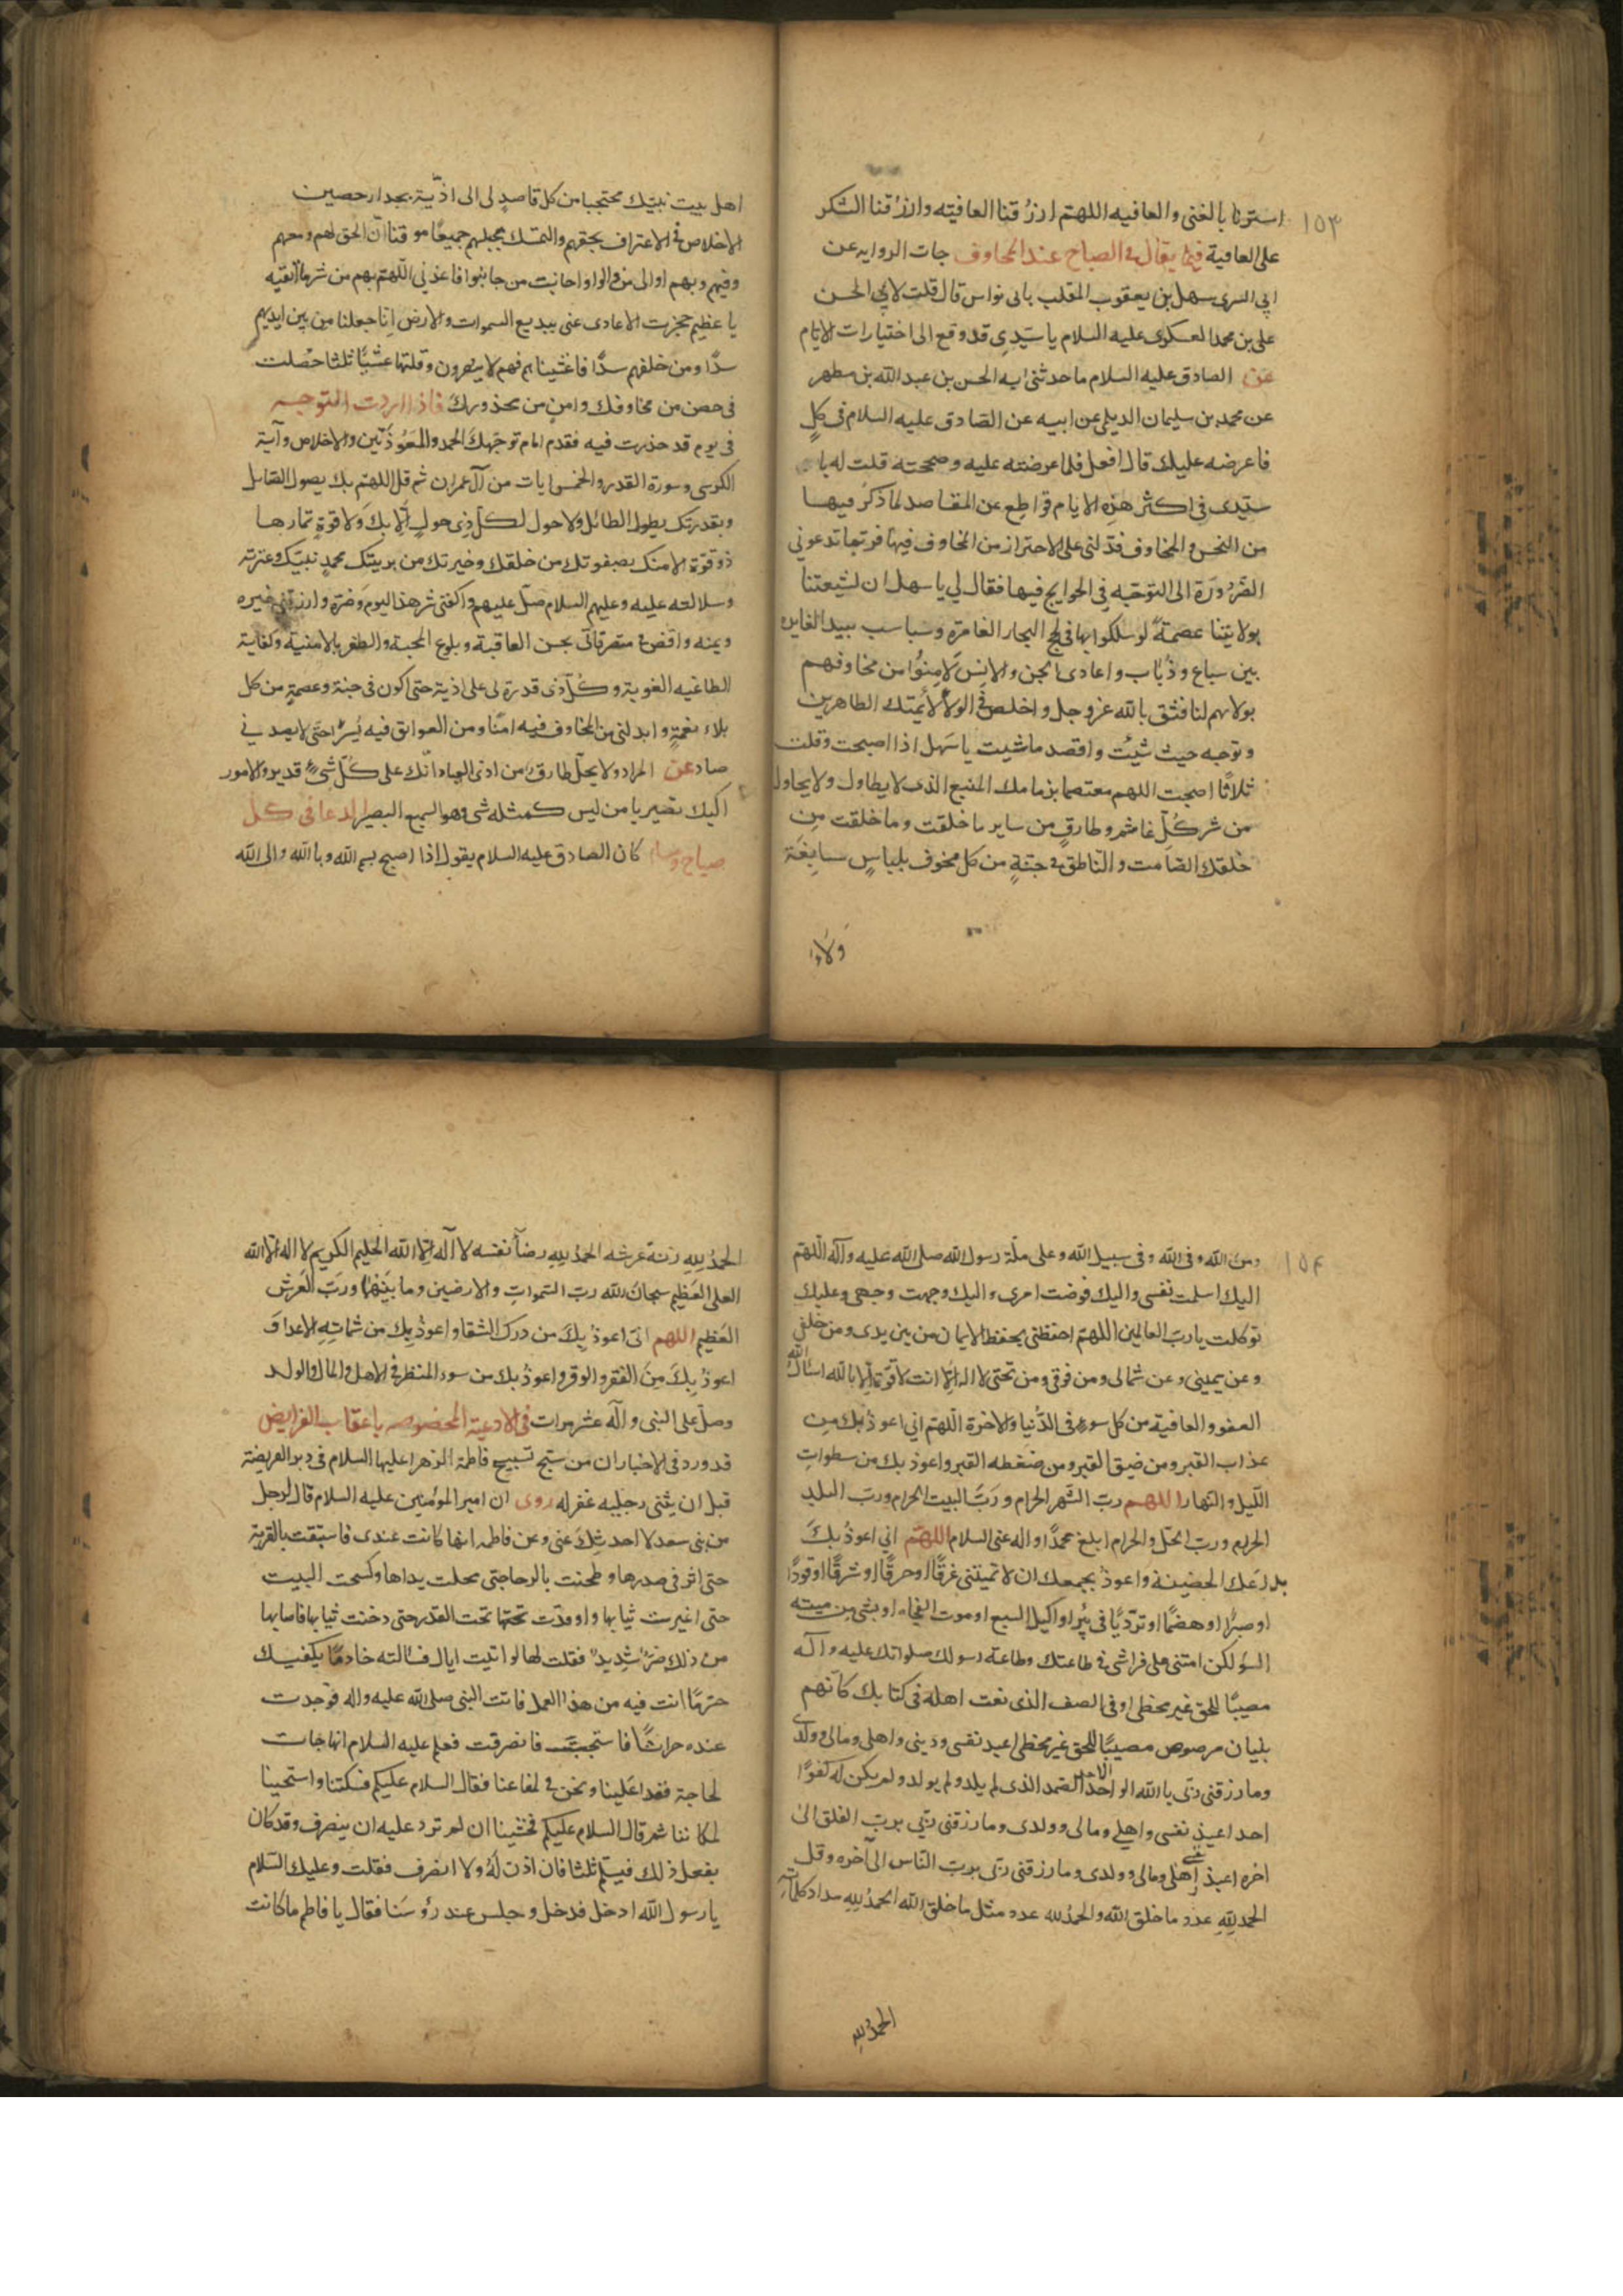 ١٥٣
استرنا بالغنى والعافيه اللهتم ارزقنا العافيته وارزقنا الشكر
على العافية فيما يقال فى الصباح عند المخاوف جات الروايه عن
ابي السرى سهل بن يعقوب الملقب بابى نواس قال قلت لابي الحسن
على بن محمد العسكرى عليه السلام يا سيدى قد وقع الى اختيارات الايام
عن الصادق عليه السلام ما حدثنى ابه الحسن بن عبد الله بن مطهر
عن محمد بن سليمان الديلمى عن ابيه عن الصادق عليه السلام فى كل
فاعرضه عليك قال افعل فلما عرضته عليه وصححته قلت له يا
سيدى فى اكثر هذه الايام قواطع عن المقاصد لما ذكر فيها
من النحس والمخاوف فدلنى على الاحتراز من المخاوف فيها فربما تدعوني
الضرورة الى التوجه في الحوايج فيها فقال لي يا سهل ان لشيعتنا
بولايتنا عصمة لو سلكوا بها فى لجج البحار الغامرة وسباسب بيد الغايره
بين سباع وذياب واعادى الجن والانس لامنوا من مخاوفهم
بولايهم لنا فثق بالله عز وجل واخلص فى الولا لائمتك الطاهرين
وتوجه حيث شئت واقصد ما شيت يا سهل اذا اصبحت وقلت
ثلاثا اصبحت اللهم معتصما بذمامك المنيع الذى لا يطاول ولا يحاول
من شر كل غاشم وطارق من ساير ما خلقت وما خلقت من
خلقك الصامت والناطق فى جنة من كل مخوف بلباس سابغة
ولاء
اهل بيت نبيك محتجبا من كل قاصد لى الى اذية بجدار حصين
الاخلاص فى الاعتراف بحقهم والتمسك بحبلهم جميعا موقنا ان الحق لهم ومعهم
وفيهم وبهم اوالى من والوا واجانب من جانبوا فاعذني اللهتم بهم من شر ما اتقيه
يا عظيم حجزت الاعادى عنى ببديع السموات والارض انا جعلنا من بين ايديهم
سدا ومن خلفهم سدا فاغشيناهم فهم لا يبصرون وقلتها عشيا ثلثا حصلت
فى حصن من مخاوفك وامن من محذورك فاذا اردت التوجه
فى يوم قد حذرت فيه فقدم امام توجهك الحمد والمعوذتين والاخلاص وآية
الكرسى وسورة القدر والخمس ايات من آل عمران ثم قل اللهتم بك يصول الصايل
وبقدرتك يطول الطائل ولا حول لكل ذى حول الا بك ولا قوة تمارها
ذو قوة الا منك بصفوتك من خلقك وخيرتك من بريتك محمد نبيك وعترته
وسلالته عليه وعليهم السلام صل عليهم واكفنى شر هذا اليوم وضره وارزقنى خيره
ويمنه واقض فى متصرفاتى بحسن العاقبة وبلوغ المحبة والظفر بالامنية وكفاية
الطاغيه الغوية وكل ذى قدرة لى على اذية حتى اكون فى جنة وعصمة من كل
بلاء نغمة وابدلنى من المخاوف فيه امنا ومن العوائق فيه يسرا حتى لا يصدني
صاد عن المراد ولا يحل طارق من اذى العباد انك على كل شئ قدير والامور
اليك تصير يا من ليس كمثله شى وهو السميع البصير الدعا فى كل
صباح ومسا كان الصادق عليه السلام يقول اذا اصبح بسم الله وبالله والى الله
١٥٤
ومن الله وفى الله وفى سبيل الله وعلى ملة رسول الله صلى الله عليه وآله اللهتم
اليك اسلمت نفسى واليك فوضت امرى واليك وجهت وجهى وعليك
توكلت يا رب العالمين اللهتم احفظنى بحفظ الايمان من بين يدى ومن خلفى
وعن يمينى وعن شمالى ومن فوقى ومن تحتى لا اله الا انت لا قوة الا بالله اسئال الله
العفو والعافية من كل سوء فى الدنيا والاخرة اللهتم اني اعوذ بك من
عذاب القبر ومن ضيق القبر ومن ضغطه القبر واعوذ بك من سطوات
الليل والنهار اللهم رب الشهر الحرام ورب البيت الحرام ورب البلد
الحرام ورب الحل والحرام ابلغ محمدا واله عنى السلام اللهتم اني اعوذ بك
بدرعك الحصينة واعوذ بجمعك ان لا تميتنى غرقا او حرقا او شرقا او قودا
او صبرا او هضما او ترديا فى بير او اكيل السبع او موت الفجاءه او بشى من ميته
السؤ لكن امتنى على فراشى فى طاعتك وطاعة رسولك صلواتك عليه وآله
مصيبا للحق غير مخطى او فى الصف الذى نعت اهله فى كتابك كانهم
بنيان مرصوص مصيبا للحق غير مخطى اعيد نفسى ودينى واهلى ومالى وولدى
وما رزقنى ربى بالله الواحد الاحد الصمد الذى لم يلد ولم يولد ولم يكن له كفوا
احد اعيذ نفسى واهلي ومالى وولدى وما رزقنى ربي برب الفلق الى
اخره اعيذ نفسى واهلى ومالى وولدى وما رزقنى ربى برب الناس الى آخره وقل
الحمد لله عدد ما خلق الله والحمد لله عدد مثل ما خلق الله الحمد لله مداد كلماته
الحمد لله
الحمد لله زنة عرشه الحمد لله رضا نفسه لا آله الا الله الحليم الكريم لا اله الا الله
العلى العظيم سبحان الله رب السموات والارضين وما بينهما ورب العرش
العظيم اللهم انى اعوذ بك من درك الشقا واعوذ بك من شماتة الاعدا و
اعوذ بك من الفقر والوقر واعوذ بك من سوء المنظر فى الاهل والمال والولد
وصل على النبى وآله عشر مرات فى الادعية المخصوصه باعقاب الفرايض
قد ورد فى الاخبار ان من سبح تسبيح فاطمة الزهرا عليها السلام فى دبر الفريضة
قبل ان يثنى رجليه غفر له روى ان امير المؤمنين عليه السلام قال لرجل
من بنى سعد لا احدثك عنى وعن فاطمه انها كانت عندى فاستقت بالقربة
حتى اثر فى صدرها وطحنت بالرحا حتى مجلت يداها وكسحت البيت
حتى اغبرت ثيابها واوقدت تحتها تحت القدر حتى دخنت ثيابها فاصابها
من ذلك ضر شديد فقلت لها لو اتيت اباك فسالته خادما يكفيك
حر ما انت فيه من هذا العمل فاتت النبى صلى الله عليه واله فوجدت
عنده حداثا فاستحيت فانصرفت فعلم عليه السلام انها جات
لحاجة فغدا علينا ونحن فى لفاعنا فقال السلام عليكم فسكتنا واستحيينا
لمكاننا ثم قال السلام عليكم فخشينا ان لم نرد عليه ان ينصرف وقد كان
يفعل ذلك فيسلم ثلثا فان اذن له ولا انصرف فقلت وعليك السلام
يا رسول الله ادخل فدخل وجلس عند رؤسنا فقال يا فاطم ما كانت